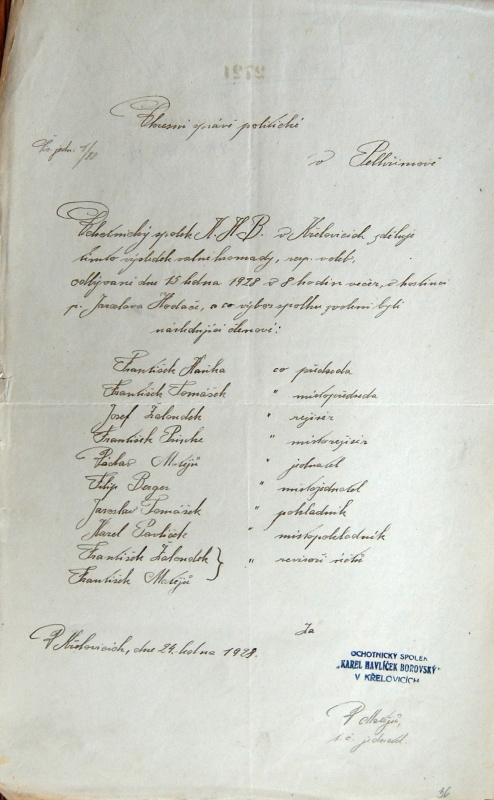 2721
Okresní správě politické
Čís. jedn. 1/28
v Pelhřimově
Ochotnický spolek K. H. B. v Křelovicích sděluje
tímto výsledek valné hromady, resp. voleb,
odbývané dne 15 ledna 1928 v 8 hodin večer, v hostinci
p. Jaroslava Hodače, a co výbor spolku zvoleni byli
následující členové:
František Kavka co předseda
František Tomášek " místopředseda
Josef Žaloudek " režisér
František " místorežisér
Václav Matějů " jednatel
Filip Berger " místojednatel
Jaroslav Tomášek " pokladník
Karel Pavlíček " místopokladník
František Žaloudek } " revisoři účtů
František Matějů
Za
V Křelovicích, dne 24. ledna 1928.
OCHOTNICKÝ SPOLEK
„KAREL HAVLÍČEK BOROVSKÝ"
V KŘELOVICÍCH
V Matějů,
t. č. jednatel.
36